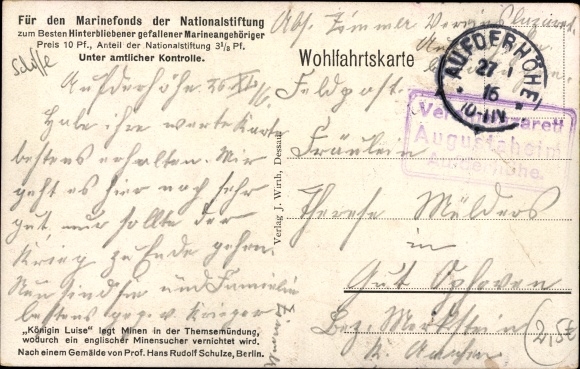 Für den Marinefonds der Nationalstiftung
zum Besten Hinterbliebener gefallener Marineangehöriger
Preis 10 Pf., Anteil der Nationalstiftung 3⅓ Pf.
Unter amtlicher Kontrolle.
Schiffe
Aufderhöhe
Habe ihre werte Karte
bestens erhalten. Mir
geht es hier noch sehr
gut, nur sollte der
Krieg zu Ende gehen.
und Familie
bestens
„Königin Luise" legt Minen in der Themsemündung,
wodurch ein englischer Minensucher vernichtet wird.
Nach einem Gemälde von Prof. Hans Rudolf Schulze, Berlin.
Verlag J. Wirth, Dessau
Abs. Zimmer
Wohlfahrtskarte
AUFDERHÖHE
27 1
16
10-11V
Augustaheim
Aufderhöhe.
Feldpost.
Fräulein
Therese Mülders
in
Gut Ophoven
Bez. Merkstein
K. Aachen
2,50